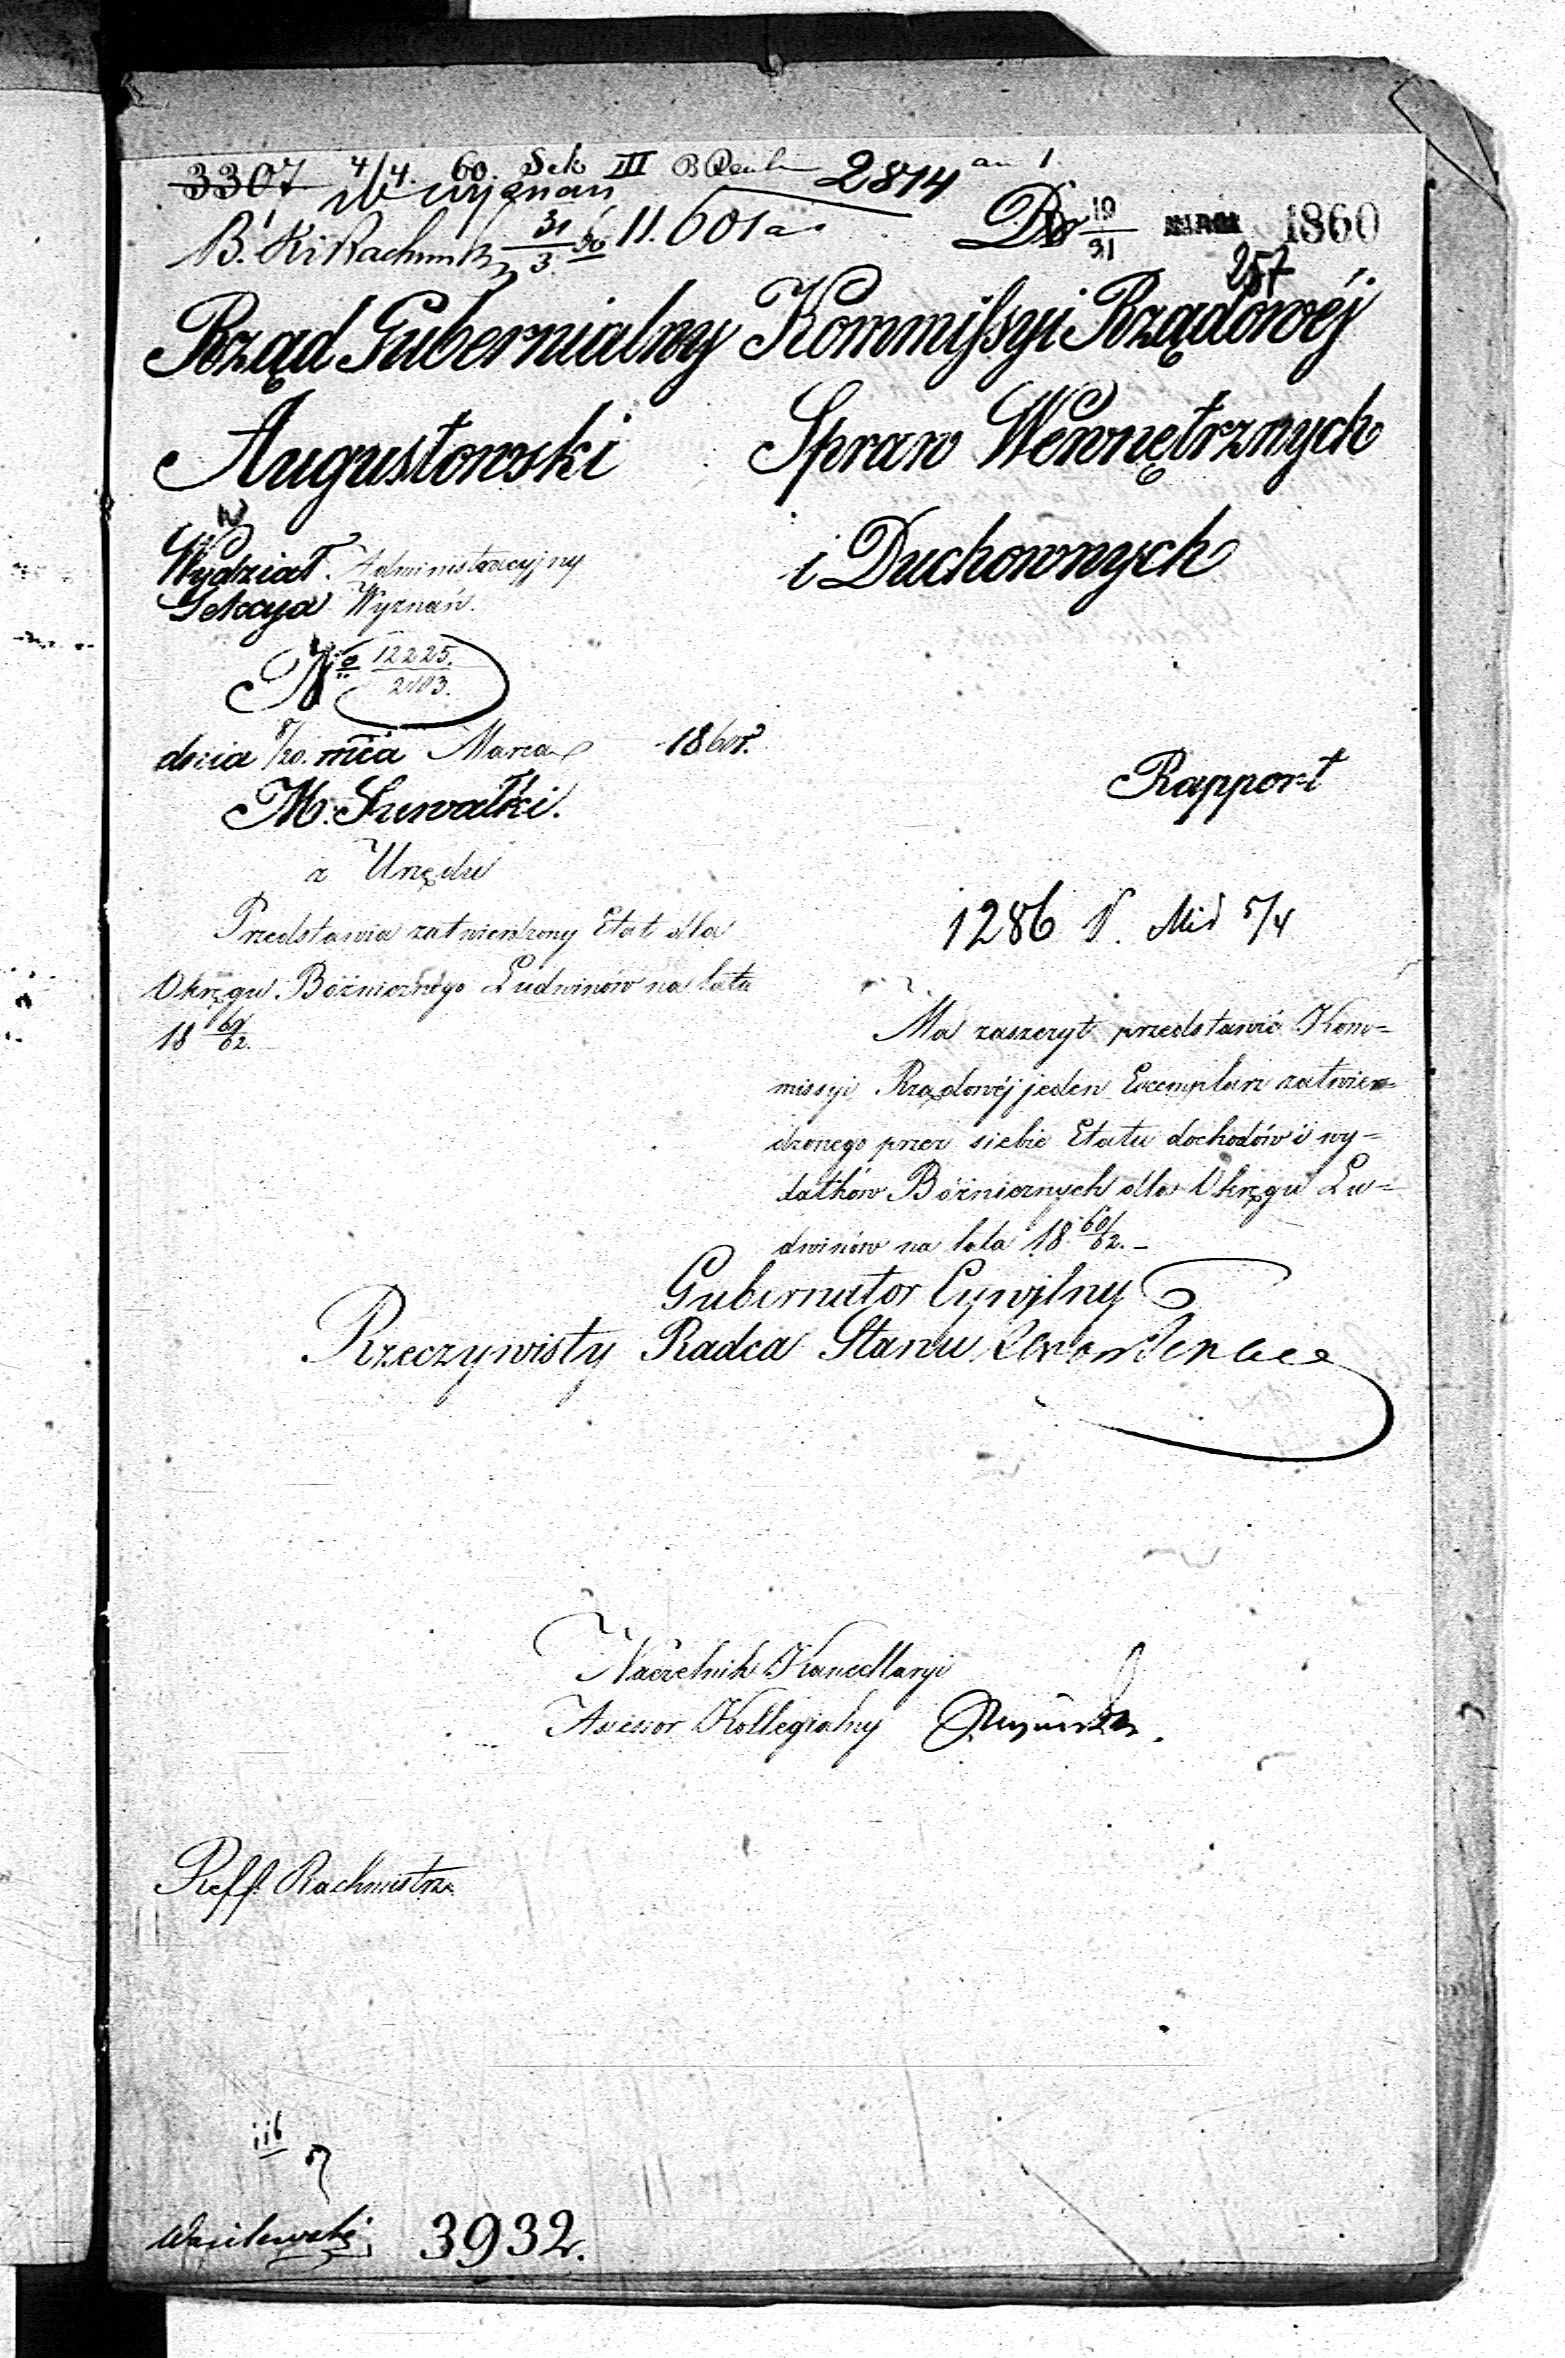 3307 4/4. 60. Sek III 2814
W wyznań
B. Ki Rachunk 31/3 60 11.601
D. 19/31 MARCA 1860
257
Rząd Gubernialny
Augustowski
Kommissyi Rządowéj
Spraw Wewnętrznych
i Duchownych
Wydział Administracyjny
Sekcya Wyznań.
No 12225.
dnia 8/20. mca Marca 1860 r.
M. Suwałki.
z Urzędu
Przedstawia zatwierdzony Etat dla
Okręgu Bóżnicznego Ludwinów na lata
18 60/62.
Rapport
1286 5/4
Ma zaszczyt przedstawić Kom=
missyi Rządowéj jeden Exemplarz zatwier=
dzonego przez siebie Etatu dochodów i wy=
datków Bóżnicznych dla Okręgu Lu=
dwinów na lata 18 60/62. –
Gubernator Cywilny
Rzeczywisty Radca Stanu
Naczelnik Kancellaryi
Assesor Kollegialny
Reff. Rachmistrz
Wasilewski 3932.